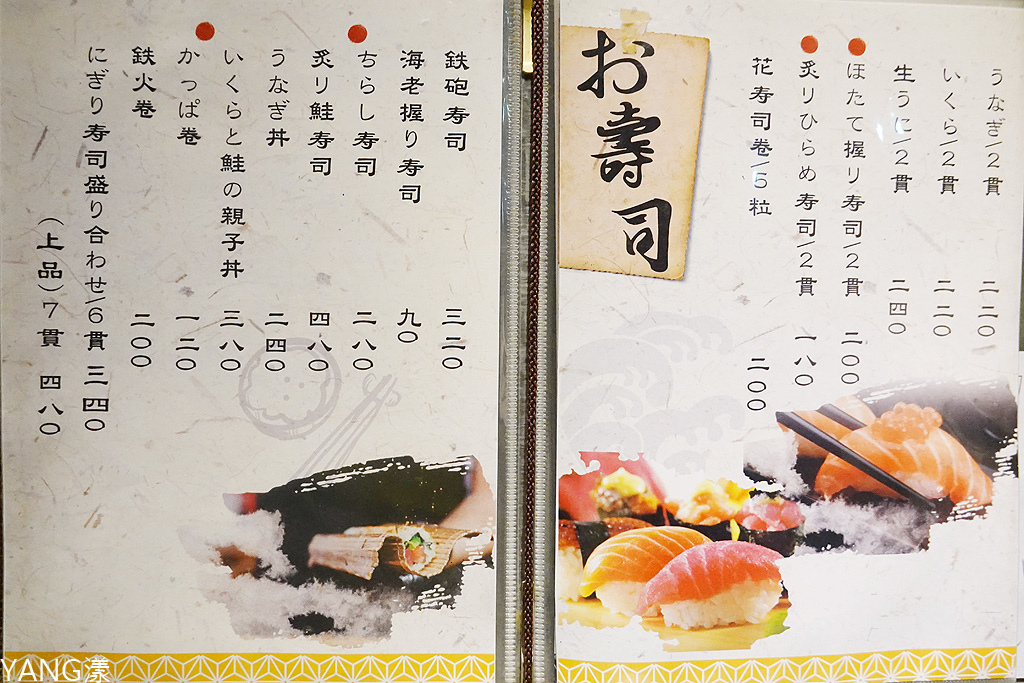 お壽司
うなぎ/2貫 二二0
いくら/2貫 二二0
生うに/2貫 二四0
ほたて握り寿司/2貫 二00
炙リひらめ寿司/2貫 一八0
花寿司卷/5粒 二00
鉄砲寿司 三二0
海老握り寿司 九0
ちらし寿司 二八0
炙リ鮭寿司 四八0
うなぎ丼 二四0
いくらと鮭の親子丼 三八0
かっぱ巻 一二0
鉄火巻 二00
にぎり寿司盛り合わせ/6貫 三四0
(上品)7貫 四八0
YANG漾